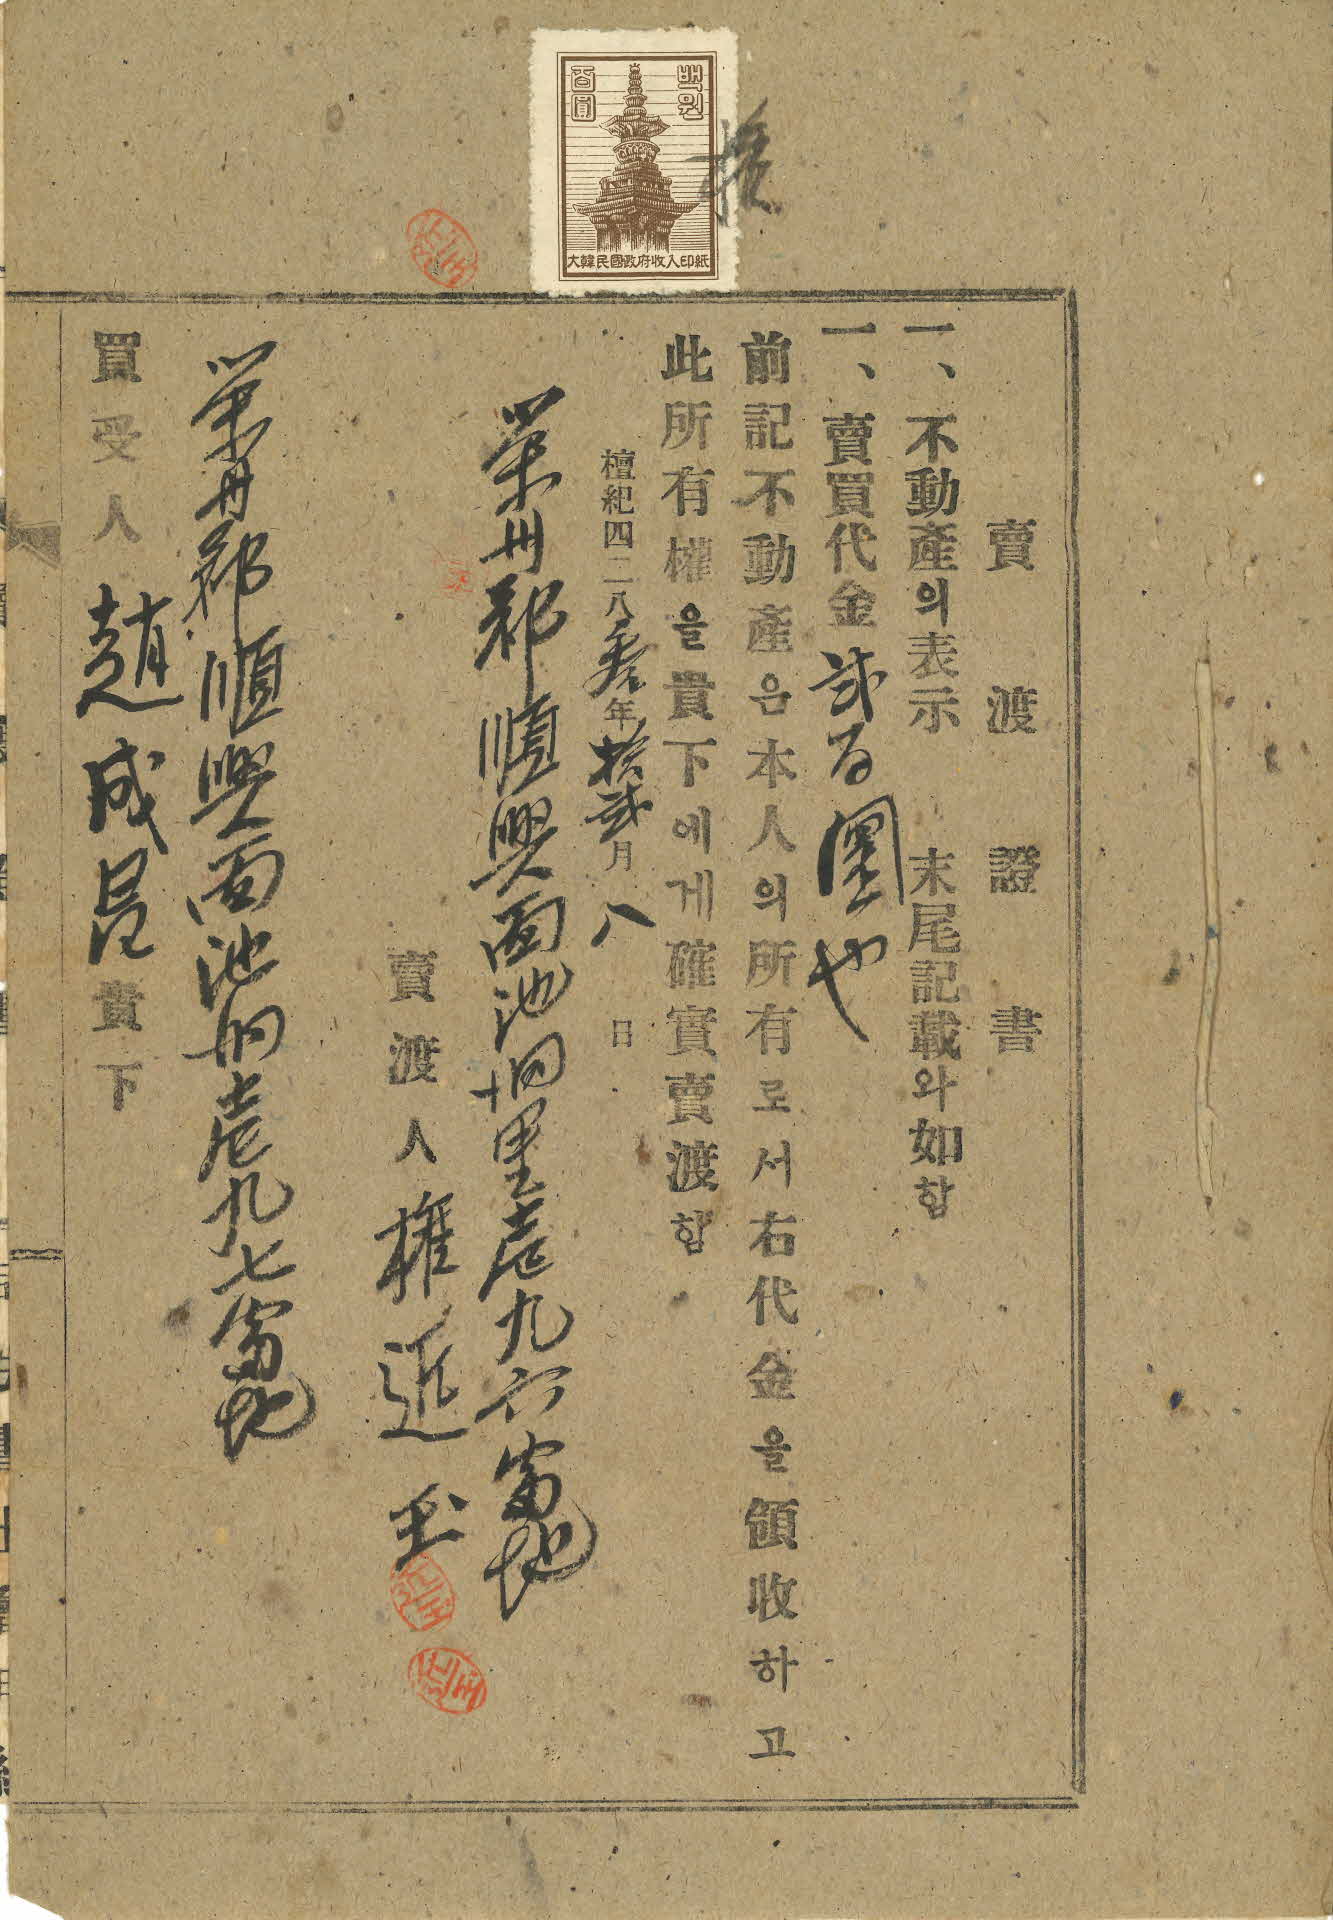 백원
百圜
大韓民國政府收入印紙
賣渡證書
一、不動產의表示 末尾記載와如함
一、賣買代金 貳百圜也
前記不動產은本人의所有로서右代金을領收하고
此所有權을貴下에게確實賣渡함
檀紀四二八參年拾貳月八日
榮州郡順興面池洞里壱九六番地
賣渡人 權近玉
榮州郡順興面池洞壱九七番地
買受人 趙成昌 貴下